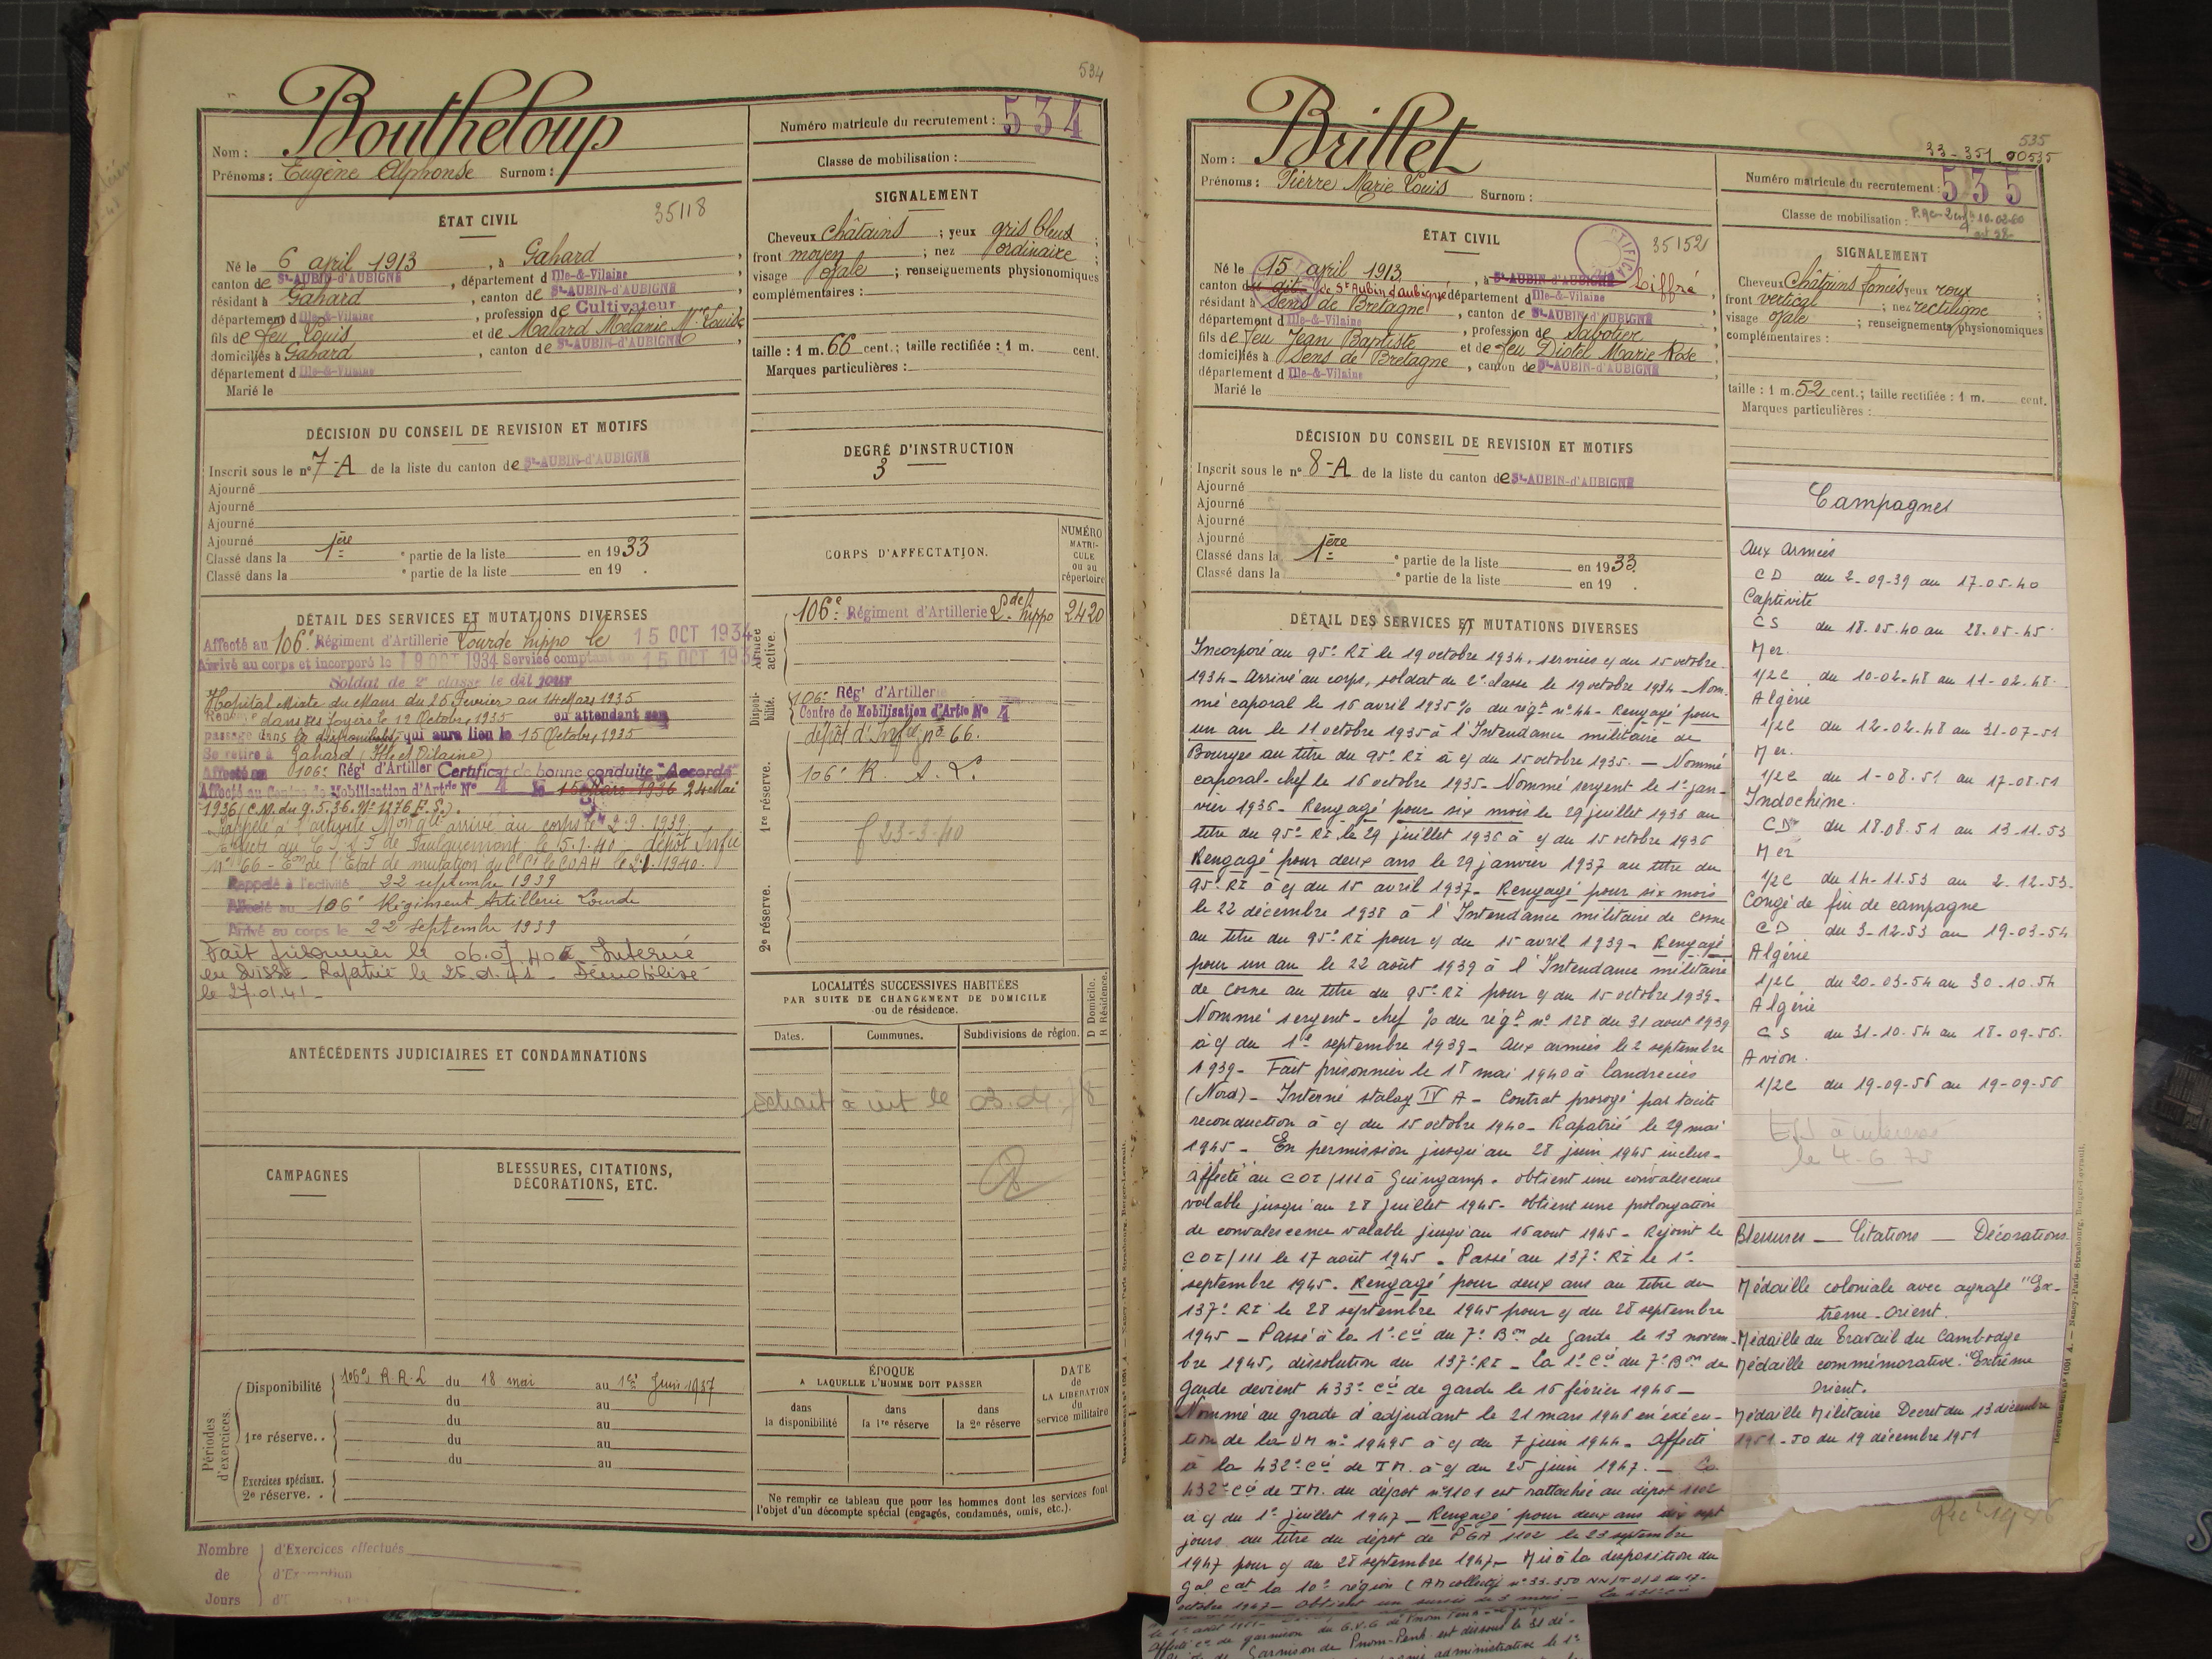 534
Boutheloup
Nom :
Prénoms : Eugène Alphonse Surnom :
Numéro matricule du recrutement : 534
Classe de mobilisation :
ÉTAT CIVIL
35118
Né le 6 avril 1913, à Gahard,
canton de St-AUBIN-d'AUBIGNÉ, département d Ille-&-Vilaine
résidant à Gahard, canton de St-AUBIN-d'AUBIGNÉ
département d Ille-&-Vilaine, profession de Cultivateur
fils de feu Louis et de Malard Mélanie Mie Louise
domiciliés à Gahard, canton de St-AUBIN-d'AUBIGNÉ,
département d Ille-&-Vilaine
Marié le
SIGNALEMENT
Cheveux châtains ; yeux gris bleus ;
front moyen ; nez ordinaire ;
visage ovale ; renseignements physionomiques
complémentaires :
taille : 1 m. 66 cent.; taille rectifiée : 1 m. cent.
Marques particulières :
DÉCISION DU CONSEIL DE REVISION ET MOTIFS
Inscrit sous le n° 7-A de la liste du canton de St-AUBIN-d'AUBIGNÉ
Ajourné
Ajourné
Ajourné
Ajourné
Classé dans la 1ère e partie de la liste en 1933
Classé dans la e partie de la liste en 19 .
DEGRÉ D'INSTRUCTION
3
CORPS D'AFFECTATION.
NUMÉRO MATRI-CULE ou au répertoire
DÉTAIL DES SERVICES ET MUTATIONS DIVERSES
Affecté au 106e Régiment d'Artillerie Lourde hippo le 15 OCT 1934
Arrivé au corps et incorporé le 19 OCT 1934 Service comptant du 15 OCT 1934
Soldat de 2e classe le dit jour
Hopital Mixte du Mans du 25 Février au 14 Mars 1935
dans ses foyers le 12 Octobre 1935 en attendant son
passage dans la disponibilité qui aura lieu le 15 Octobre 1935
Se retire à Gahard (Ille et Vilaine)
Affecté au 106e Rég' d'Artiller Certificat de bonne conduite "Accordé"
Affecté au Centre de Mobilisation d'Artie N° 4 le 15 Mars 1936 24 Mai
1936 (C.M. du 9.5.36. N° 1276 E.S.).
Rappelé à l'activité arrivé au corps le 2.9.1939.
le 15.1.40 - dépôt Infie
n° 66 - de l'Etat de mutation du le 1940.
Rappelé à l'activité 22 septembre 1939
Affecté au 106e Régiment Artillerie Lourde
Arrivé au corps le 22 septembre 1939
Fait prisonnier le 06.07.40 Interné
en Suisse - Rapatrié le 25.01.41 - Démobilisé
le 27.01.41 -
Armée active.
106e Régiment d'Artillerie Lde hippo 2420
Disponi-bilité.
106e Rég' d'Artillerie
Centre de Mobilisation d'Artie N° 4
dépôt d'Infie n° 66.
1re réserve.
106e R. A. L.
f 23-3-40
2e réserve.
ANTÉCÉDENTS JUDICIAIRES ET CONDAMNATIONS
LOCALITÉS SUCCESSIVES HABITÉES
PAR SUITE DE CHANGEMENT DE DOMICILE
ou de résidence.
D Domicile. R Résidence.
Dates. Communes. Subdivisions de région.
CAMPAGNES
BLESSURES, CITATIONS,
DÉCORATIONS, ETC.
Périodes d'exercices.
Disponibilité 106e R.A.L du 18 mai au 1er Juin 1937
du au
du au
1re réserve. . du au
du au
Exercices spéciaux.
2e réserve. .
ÉPOQUE
A LAQUELLE L'HOMME DOIT PASSER
dans la disponibilité
dans la 1re réserve
dans la 2e réserve
DATE DE LA LIBÉRATION du service militaire
Ne remplir ce tableau que pour les hommes dont les services font
l'objet d'un décompte spécial (engagés, condamnés, omis, etc.).
Nombre d'Exercices effectués
de d'Exemption
Jours
535
33-351-00535
Brillet
Nom :
Prénoms : Pierre Marie Louis Surnom :
Numéro matricule du recrutement : 535
Classe de mobilisation :
ÉTAT CIVIL
35152
Né le 15 avril 1913, à St-AUBIN-d'AUBIGNÉ Liffré,
canton du dit de St Aubin d'aubigné département d Ille-&-Vilaine
résidant à Sens de Bretagne, canton de St-AUBIN-d'AUBIGNÉ
département d Ille-&-Vilaine, profession de Sabotier
fils de feu Jean Baptiste et de feu Diotel Marie Rose
domiciliés à Sens de Bretagne, canton de St-AUBIN-d'AUBIGNÉ,
département d Ille-&-Vilaine
Marié le
SIGNALEMENT
Cheveux châtains foncés yeux roux ;
front vertical ; nez rectiligne ;
visage ovale ; renseignements physionomiques
complémentaires :
taille : 1 m. 52 cent.; taille rectifiée : 1 m. cent.
Marques particulières :
DÉCISION DU CONSEIL DE REVISION ET MOTIFS
Inscrit sous le n° 8-A de la liste du canton de St-AUBIN-d'AUBIGNÉ
Ajourné
Ajourné
Ajourné
Ajourné
Classé dans la 1ère e partie de la liste en 1933.
Classé dans la e partie de la liste en 19 .
DÉTAIL DES SERVICES ET MUTATIONS DIVERSES
Incorporé au 95e RI le 19 octobre 1934, services c/ du 15 octobre
1934 - Arrivé au corps, soldat de 2e classe le 19 octobre 1934 - Nom-
mé caporal le 16 avril 1935 % du régt n° 44 - Rengagé pour
un an le 11 octobre 1935 à l'Intendance militaire de
Bourges au titre du 95e RI à c/ du 15 octobre 1935. - Nommé
caporal-chef le 16 octobre 1935 - Nommé sergent le 1er jan-
vier 1936 - Rengagé pour six mois le 29 juillet 1936 au
titre du 95e RI le 29 juillet 1936 à c/ du 15 octobre 1936
Rengagé pour deux ans le 29 janvier 1937 au titre du
95e RI à c/ du 15 avril 1937 - Rengagé pour six mois
le 22 décembre 1938 à l'Intendance militaire de Cosne
au titre du 95e RI pour c/ du 15 avril 1939 - Rengagé
pour un an le 22 août 1939 à l'Intendance militaire
de Cosne au titre du 95e RI pour c/ du 15 octobre 1939 -
Nommé sergent-chef % du régt n° 128 du 31 aout 1939
à c/ du 1er septembre 1939 - Aux armées le 2 septembre
1939 - Fait prisonnier le 18 mai 1940 à Landrecies
(Nord) - Interné stalag IV A - Contrat prorogé par tacite
reconduction à c/ du 15 octobre 1940 - Rapatrié le 29 mai
1945 - En permission jusqu'au 28 juin 1945 inclus -
Affecté au COT/111 à Guingamp. Obtient une convalescence
valable jusqu'au 28 juillet 1945 - Obtient une prolongation
de convalescence valable jusqu'au 16 aout 1945 - Rejoint le
COT/111 le 17 août 1945 - Passé au 137e RI le 1er
septembre 1945. Rengagé pour deux ans au titre du
137e RI le 28 septembre 1945 pour c/ du 28 septembre
1945 - Passé à la 1e Cie du 7e Bon de garde le 13 novem-
bre 1945, dissolution du 137e RI - La 1e Cie du 7e Bon de
garde devient 433e Cie de garde le 16 février 1946 -
Nommé au grade d'adjudant le 21 mars 1946 en exécu-
tion de la DM n° 19495 à c/ du 7 juin 1944. Affecté
à la 432e Cie de TM. à c/ du 25 juin 1947. - La
432e Cie de TM. du dépôt n° 1101 est rattachée au dépôt 1102
à c/ du 1er juillet 1947 - Rengagé pour deux ans dix sept
jours au titre du dépôt de PGA 1102 le 23 septembre
1947 pour c/ du 28 septembre 1947 - Mis à la disposition du
Gal Cdt la 10e région
octobre 1947 - Obtient un sursis de 3 mois -
Affecté Cie de garnison du G.V.G de Pnom Penh
Garnison de Pnom-Penh est dissous le 31 dé-
administrative le 1er
Campagnes
Aux Armées
CD du 2-09-39 au 17-05-40
Captivité
CS du 18.05.40 au 28.05.45.
Mer.
1/2C du 10-02-48 au 11-02-48.
Algérie
1/2C du 12-02-48 au 31-07-51
Mer.
1/2C du 1-08-51 au 17-08-51
Indochine.
CD du 18.08.51 au 13.11.53
Mer
1/2C du 14-11.53 au 2.12-53.
Congé de fin de campagne
CD du 3-12-53 au 19-03-54
Algérie
1/2C du 20-03-54 au 30-10.54
Algérie
CS du 31-10-54 au 18-09-56.
Avion.
1/2C du 19-09-56 au 19-09-56
le 4-6 75
Blessures - Citations - Décorations
Médaille coloniale avec agrafe "Ex-
trême-Orient.
Médaille du Travail du Cambodge
Médaille commémorative "Extrême
Orient.
Médaille Militaire Decret du 13 décembre
1951 - JO du 19 décembre 1951